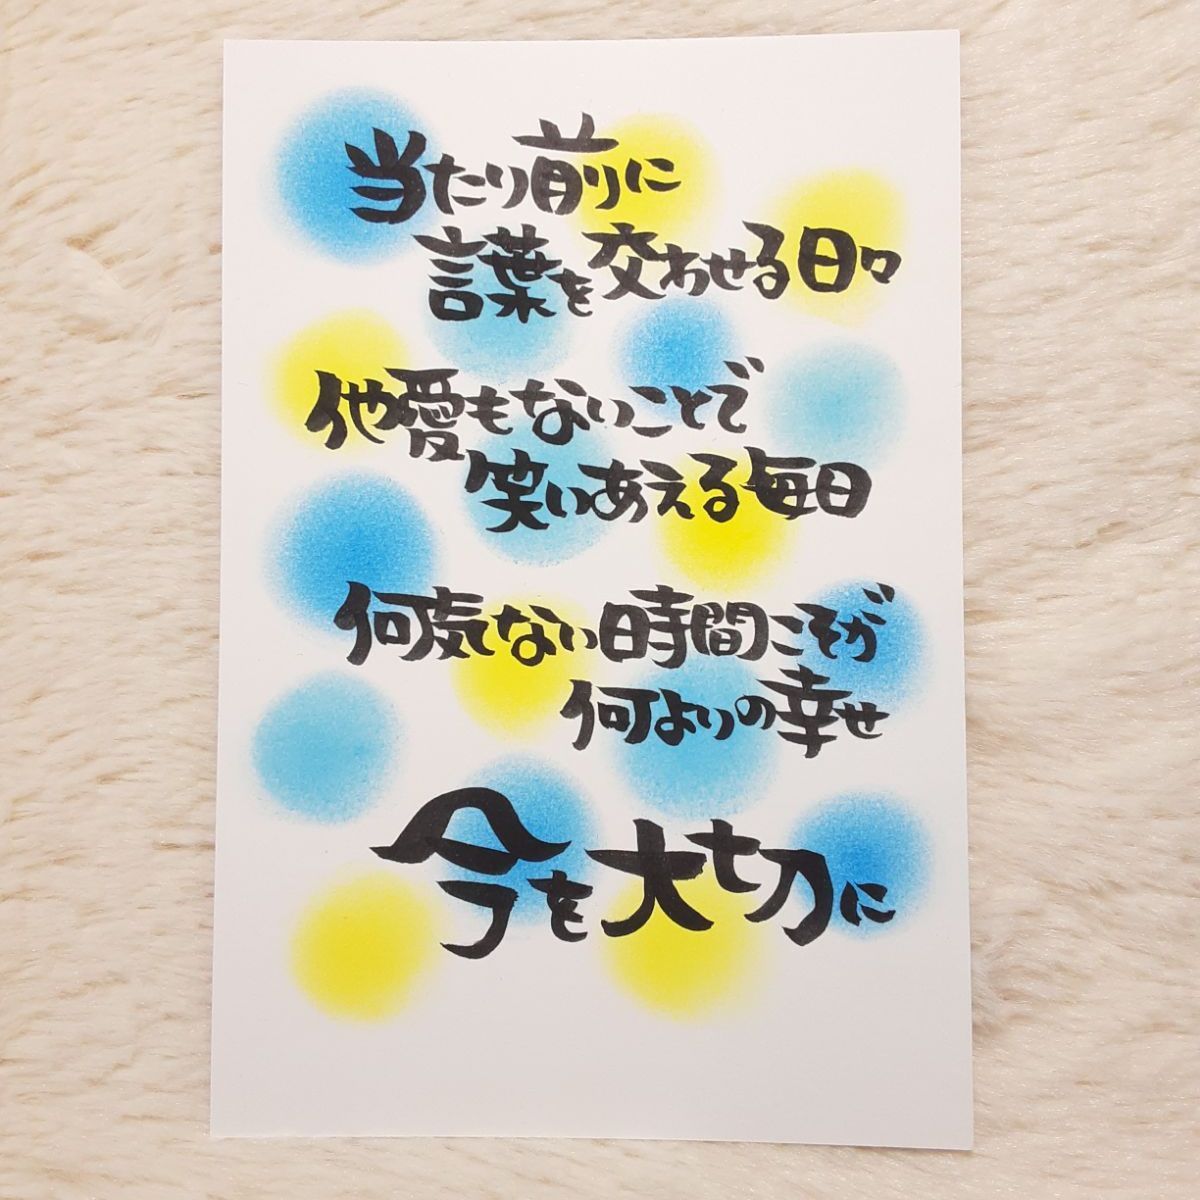 当たり前に
言葉を交わせる日々
他愛もないことで
笑いあえる毎日
何気ない時間こそが
何よりの幸せ
今を大切に